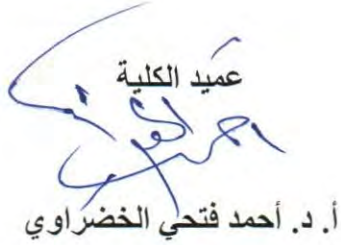 عميد الكلية
أ. د. أحمد فتحي الخضراوي